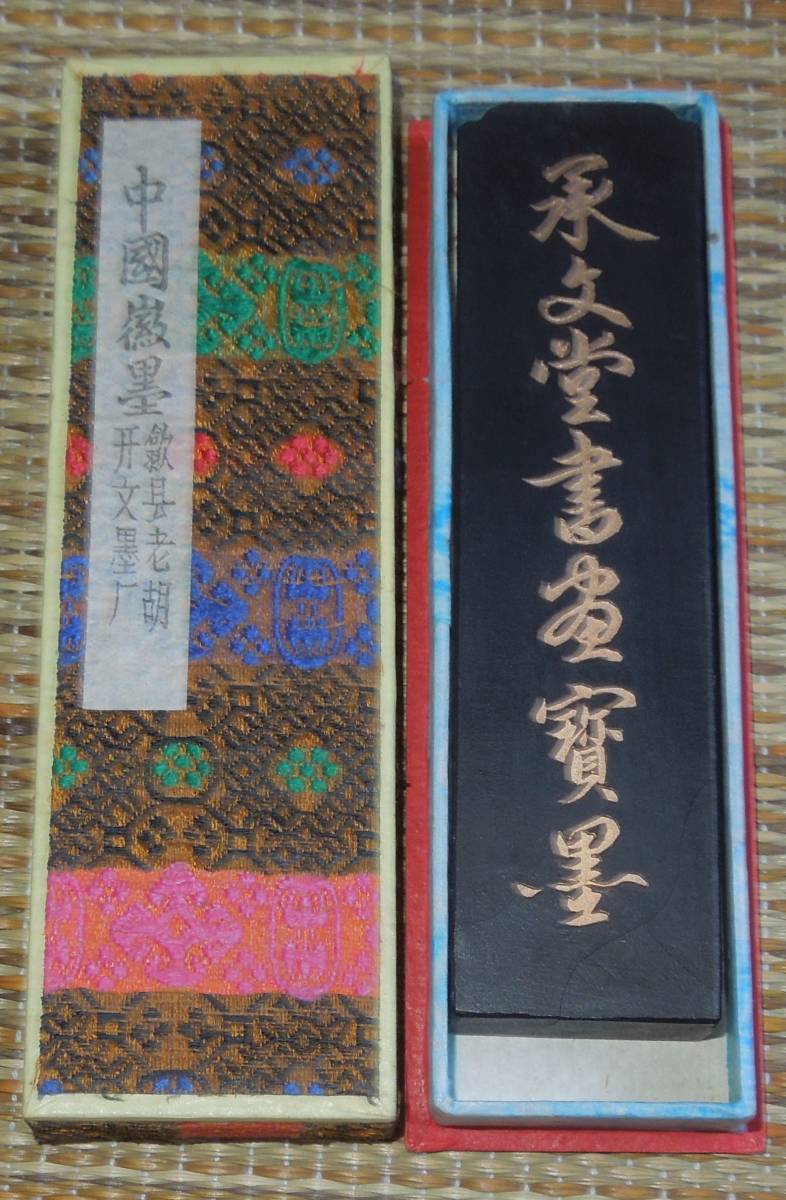 中國徽墨
歙县老胡
开文墨厂
承文堂書畫寶墨